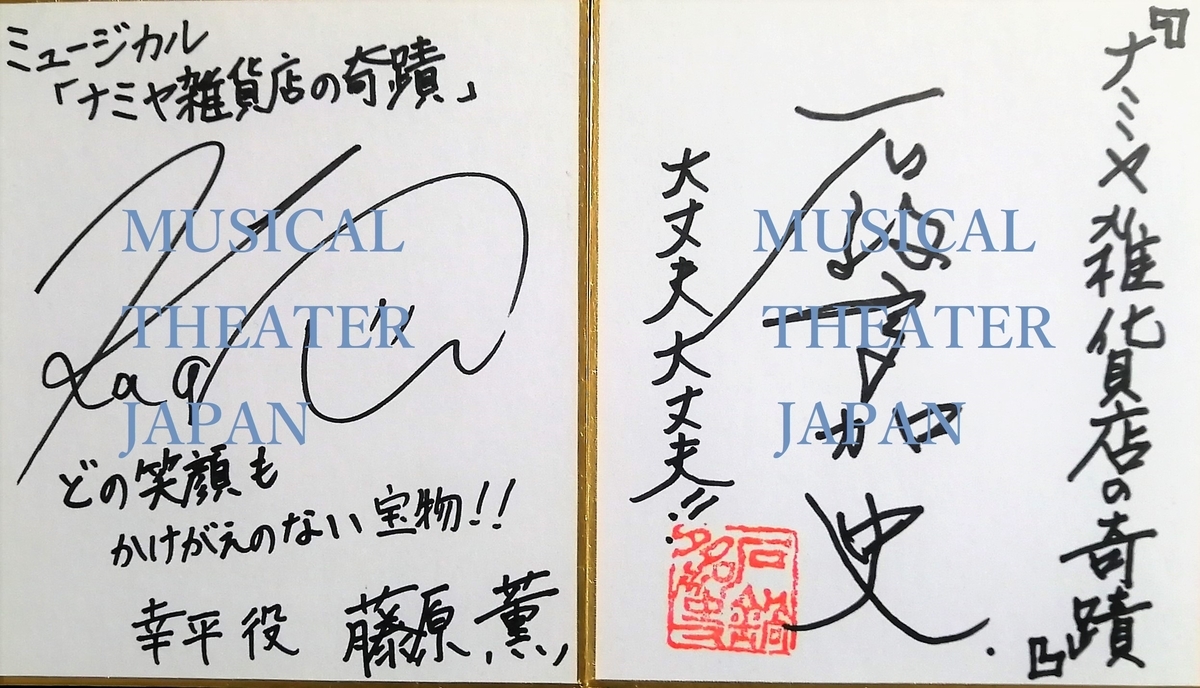 ミュージカル
「ナミヤ雑貨店の奇蹟」
どの笑顔も
かけがえのない宝物!!
幸平役 藤原 薫
MUSICAL
THEATER
JAPAN
『ナミヤ雑貨店の奇蹟』
石鍋多加史
大丈夫大丈夫!!
石鍋
多加史
MUSICAL
THEATER
JAPAN